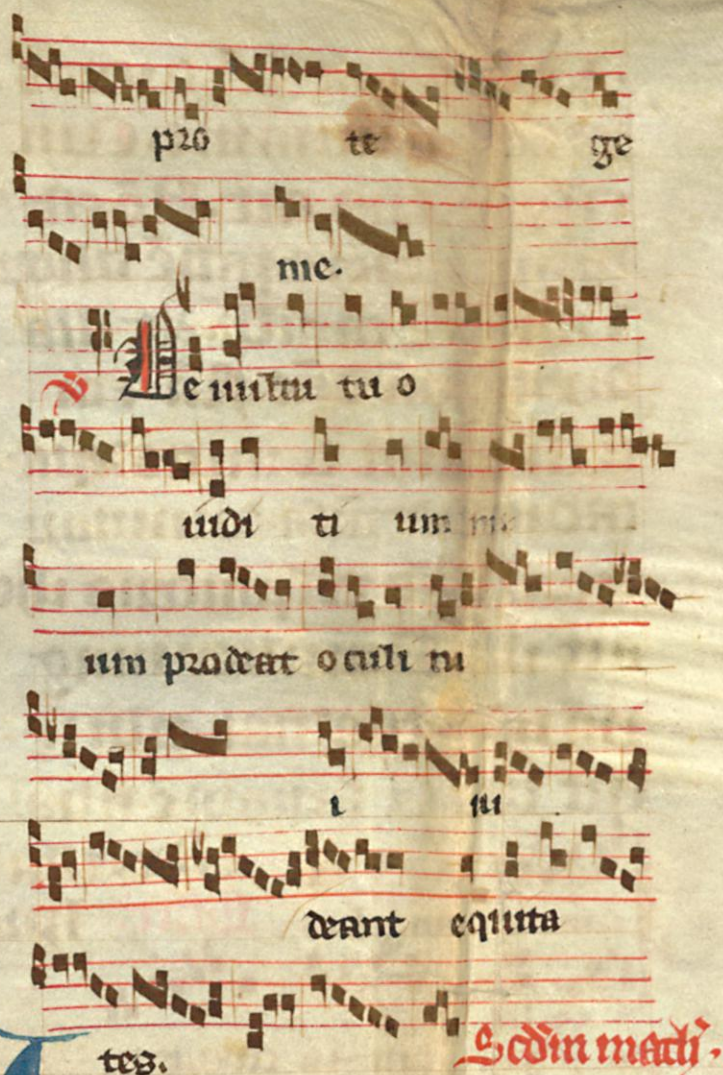 pro te ge
me.
℣ De uultu tu o
iudi ti um m
um prodeat oculi tu
i ui
deant equita
tes. Scdm math̄.